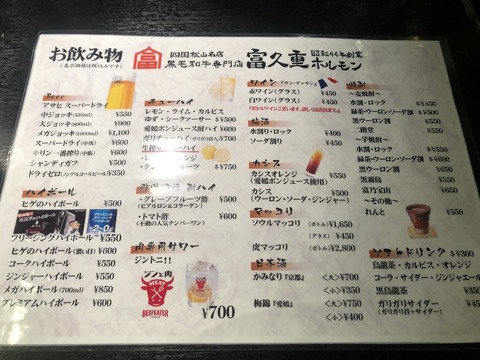 お飲み物
(表示価格は税込みです)
富
四国松山名店
黒毛和牛専門店
富久重
昭和44年創業
ホルモン
Beer
アサヒ スーパードライ
中ジョッキ ¥550
大ジョッキ ¥900
メガジョッキ ¥1,100
スーパードライ(中瓶) ¥600
¥600
シャンディガフ ¥550
ドライゼロ ¥550
ハイボール
ヒゲのハイボール ¥500
フリージングハイボール ¥550
-2℃
ヒゲのハイボール(濃いめ) ¥600
コークハイボール ¥550
ジンジャーハイボール ¥550
メガハイボール(700ml) ¥850
プレミアムハイボール ¥600
チューハイ
レモン・ライム・カルピス
ゆず・シークァーサー 各¥500
愛媛ポンジュース酎ハイ ¥600
¥600
¥700
・グレープフルーツ酢 ¥650
(ヒアルロン&コラーゲン)
・トマト酢 ¥600
(不動の人気ナンバーワン)
肉専用サワー
ジントニ!!
ジンと肉
MEAT
BEEFEATER
¥700
ワイン
赤ワイン(グラス) ¥450
白ワイン(グラス) ¥450
梅酒
水割り・ロック ¥400
ソーダ割り ¥450
カシス
カシスオレンジ ¥550
(愛媛ポンジュース使用)
カシス ¥500
(ウーロン・ソーダ・ジンジャー)
マッコリ
ソウルマッコリ (ボトル) ¥1,650
(グラス) ¥450
虎マッコリ (ボトル) ¥2,800
日本酒
かみなり『京都』 <大>¥700
<小>¥350
梅錦『愛媛』 <大>¥750
<小>¥400
~麦焼酎~
水割・ロック ¥450
緑茶・ウーロン・ソーダ割 各¥500
黒ウーロン割 ¥550
二階堂 ¥500
~芋焼酎~
水割・ロック ¥450
緑茶・ウーロン・ソーダ割 各¥500
黒ウーロン割 ¥550
黒霧島 ¥500
富乃宝山 ¥600
~その他~
れんと ¥550
ソフトドリンク 各¥300
烏龍茶・カルピス・オレンジ
コーラ・サイダー・ジンジャエール
黒烏龍茶 ¥350
ガリガリサイダー ¥450
(ガリガリ君+サイダー)